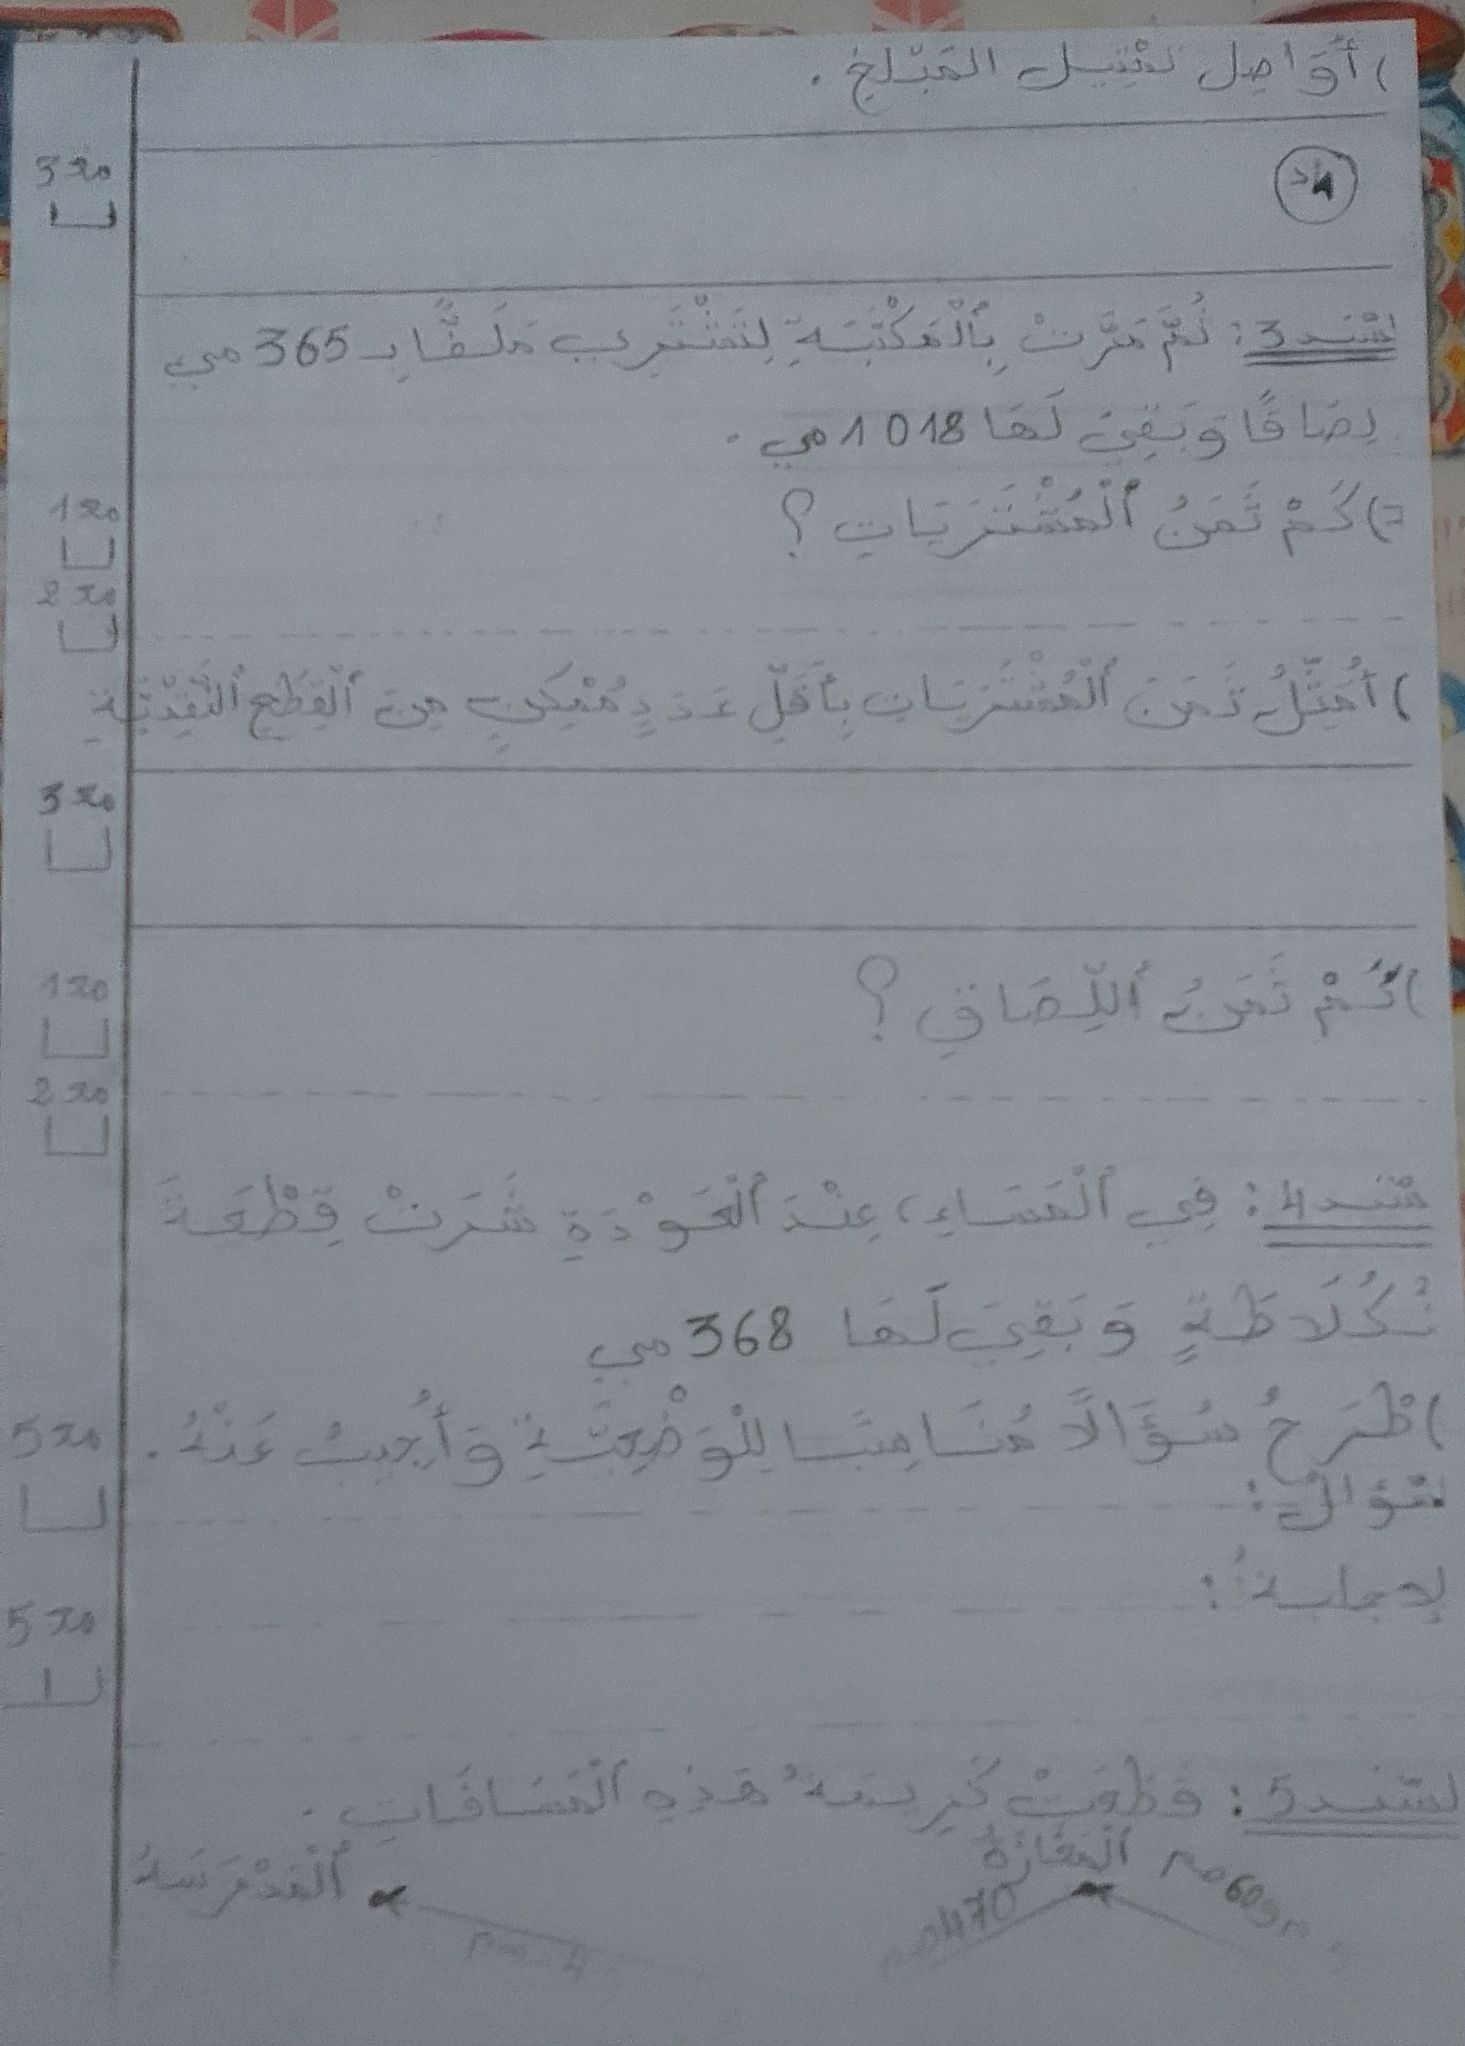 ) أُوَاصِل تَمْثِيل المَبْلَغِ .
3 ن
1د
السّند 3 : ثُمَّ مَرَّتْ بِالْمَكْتَبَةِ لِتَشْتَرِي مَلَفًّا بِـ 365 مي
لِصَاقًا وَبَقِيَ لَهَا 1018 مي .
) كَمْ ثَمَنُ الْمُشْتَرَيَاتِ ؟
1 ن
2 ن
) أُمَثِّلُ ثَمَنَ الْمُشْتَرَيَاتِ بِأَقَلِّ عَدَدٍ مُمْكِنٍ مِنَ الْقِطَعِ النَّقْدِيَّةِ
3 ن
) كَمْ ثَمَنُ اللِّصَاقِ ؟
1 ن
2 ن
سّند 4 : فِي الْمَسَاءِ، عِنْدَ الْعَوْدَةِ شَرَتْ قِطْعَةَ
شُكُلَاطَةٍ وَبَقِيَ لَهَا 368 مي
) أطْرَحُ سُؤَالًا مُنَاسِبًا لِلْوَضْعِيَّةِ وَأُجِيبُ عَنْهُ .
5 ن
السّؤالُ :
الإجابةُ :
5 ن
السّند 5 : قَطَعَتْ كَرِيمَةُ هَذِهِ الْمَسَافَاتِ .
الْمَغَازَةُ
الْمَدْرَسَةُ
470
609